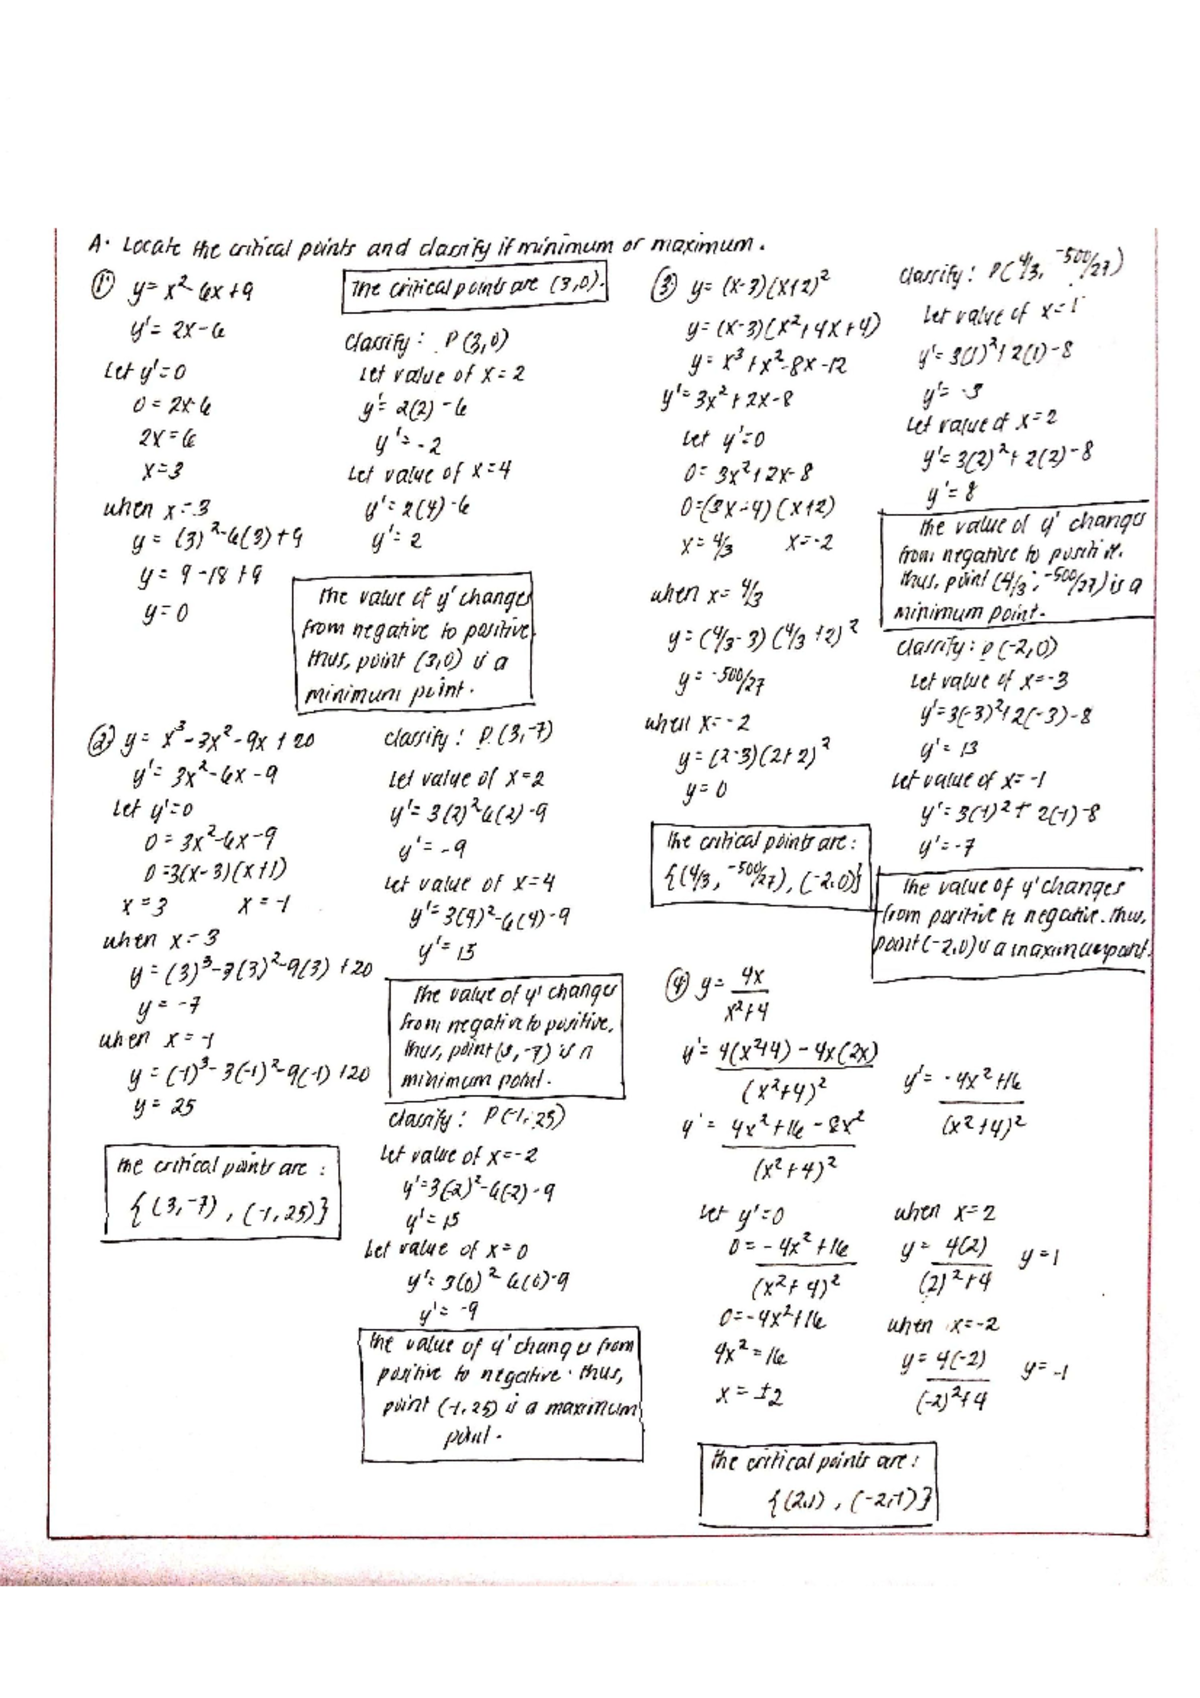 A. Locate the critical points and classify if minimum or maximum.
① y = x² - 6x + 9
y' = 2x - 6
Let y' = 0
0 = 2x - 6
2x = 6
x = 3
when x = 3
y = (3)² - 6(3) + 9
y = 9 - 18 + 9
y = 0
The critical points are (3,0).
Classify: P(3,0)
Let value of x = 2
y' = 2(2) - 6
y' = -2
Let value of x = 4
y' = 2(4) - 6
y' = 2
The value of y' changes
from negative to positive.
thus, point (3,0) is a
minimum point.
② y = x³ - 3x² - 9x + 20
y' = 3x² - 6x - 9
Let y' = 0
0 = 3x² - 6x - 9
0 = 3(x-3)(x+1)
x = 3 x = -1
when x = 3
y = (3)³ - 3(3)² - 9(3) + 20
y = -7
when x = -1
y = (-1)³ - 3(-1)² - 9(-1) + 20
y = 25
The critical points are :
{(3,-7), (-1,25)}
classify: P(3,-7)
Let value of x = 2
y' = 3(2)² - 6(2) - 9
y' = -9
Let value of x = 4
y' = 3(4)² - 6(4) - 9
y' = 15
The value of y' changes
from negative to positive.
thus, point (3,-7) is a
minimum point.
classify: P(-1,25)
Let value of x = -2
y' = 3(-2)² - 6(-2) - 9
y' = 15
Let value of x = 0
y' = 3(0)² 6(0) - 9
y' = -9
The value of y' changes from
positive to negative. thus,
point (-1,25) is a maximum
point.
③ y = (x-3)(x+2)²
y = (x-3)(x² + 4x + 4)
y = x³ + x² - 8x - 12
y' = 3x² + 2x - 8
Let y' = 0
0 = 3x² + 2x - 8
0 = (3x-4)(x+2)
x = 4/3 x = -2
when x = 4/3
y = (4/3 - 3)(4/3 + 2)²
y = -500/27
when x = -2
y = (2-3)(2+2)²
y = 0
The critical points are:
{(4/3, -500/27), (-2,0)}
Classify: P(4/3, -500/27)
Let value of x = 1
y' = 3(1)² + 2(1) - 8
y' = -3
Let value of x = 2
y' = 3(2)² + 2(2) - 8
y' = 8
The value of y' changes
from negative to positive.
thus, point (4/3, -500/27) is a
minimum point.
classify: P(-2,0)
Let value of x = -3
y' = 3(-3)² + 2(-3) - 8
y' = 13
Let value of x = -1
y' = 3(-1)² + 2(-1) - 8
y' = -7
The value of y' changes
from positive to negative. thus,
point (-2,0) is a maximum point.
④ y = 4x / x² + 4
y' = 4(x²+4) - 4x(2x) / (x²+4)²
y' = 4x² + 16 - 8x² / (x²+4)²
y' = -4x² + 16 / (x²+4)²
Let y' = 0
0 = -4x² + 16 / (x²+4)²
0 = -4x² + 16
4x² = 16
x = ±2
when x = 2
y = 4(2) / (2)² + 4 y = 1
when x = -2
y = 4(-2) / (-2)² + 4 y = -1
The critical points are:
{(2,1), (-2,-1)}